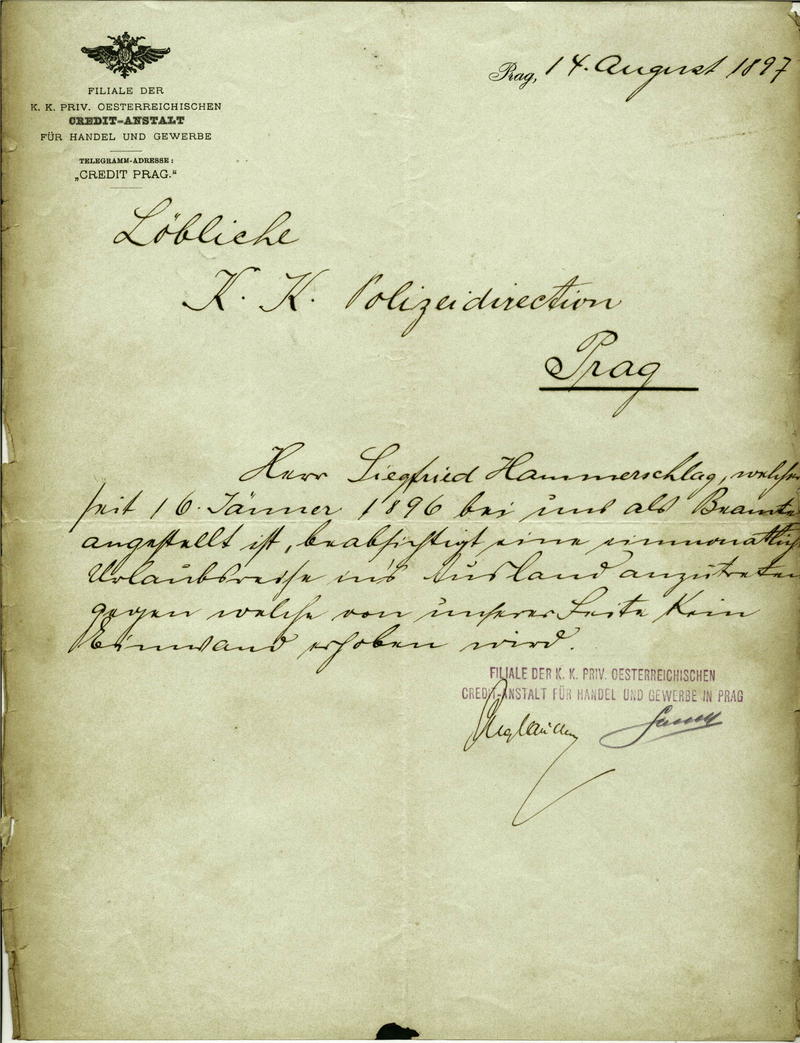 FILIALE DER
K. K. PRIV. OESTERREICHISCHEN
CREDIT-ANSTALT
FÜR HANDEL UND GEWERBE
TELEGRAMM-ADRESSE:
„CREDIT PRAG.“
Prag, 14. August 1897
Löbliche
K. K. Polizeidirection
Prag
Herr Siegfried Hammerschlag, welcher
seit 16. Jänner 1896 bei uns als Beamte
angestellt ist, beabsichtigt eine einmonatlich
Urlaubsreise in's Ausland anzutreten
gegen welche von unserer Seite kein
Einwand erhoben wird.
FILIALE DER K. K. PRIV. OESTERREICHISCHEN
CREDIT-ANSTALT FÜR HANDEL UND GEWERBE IN PRAG